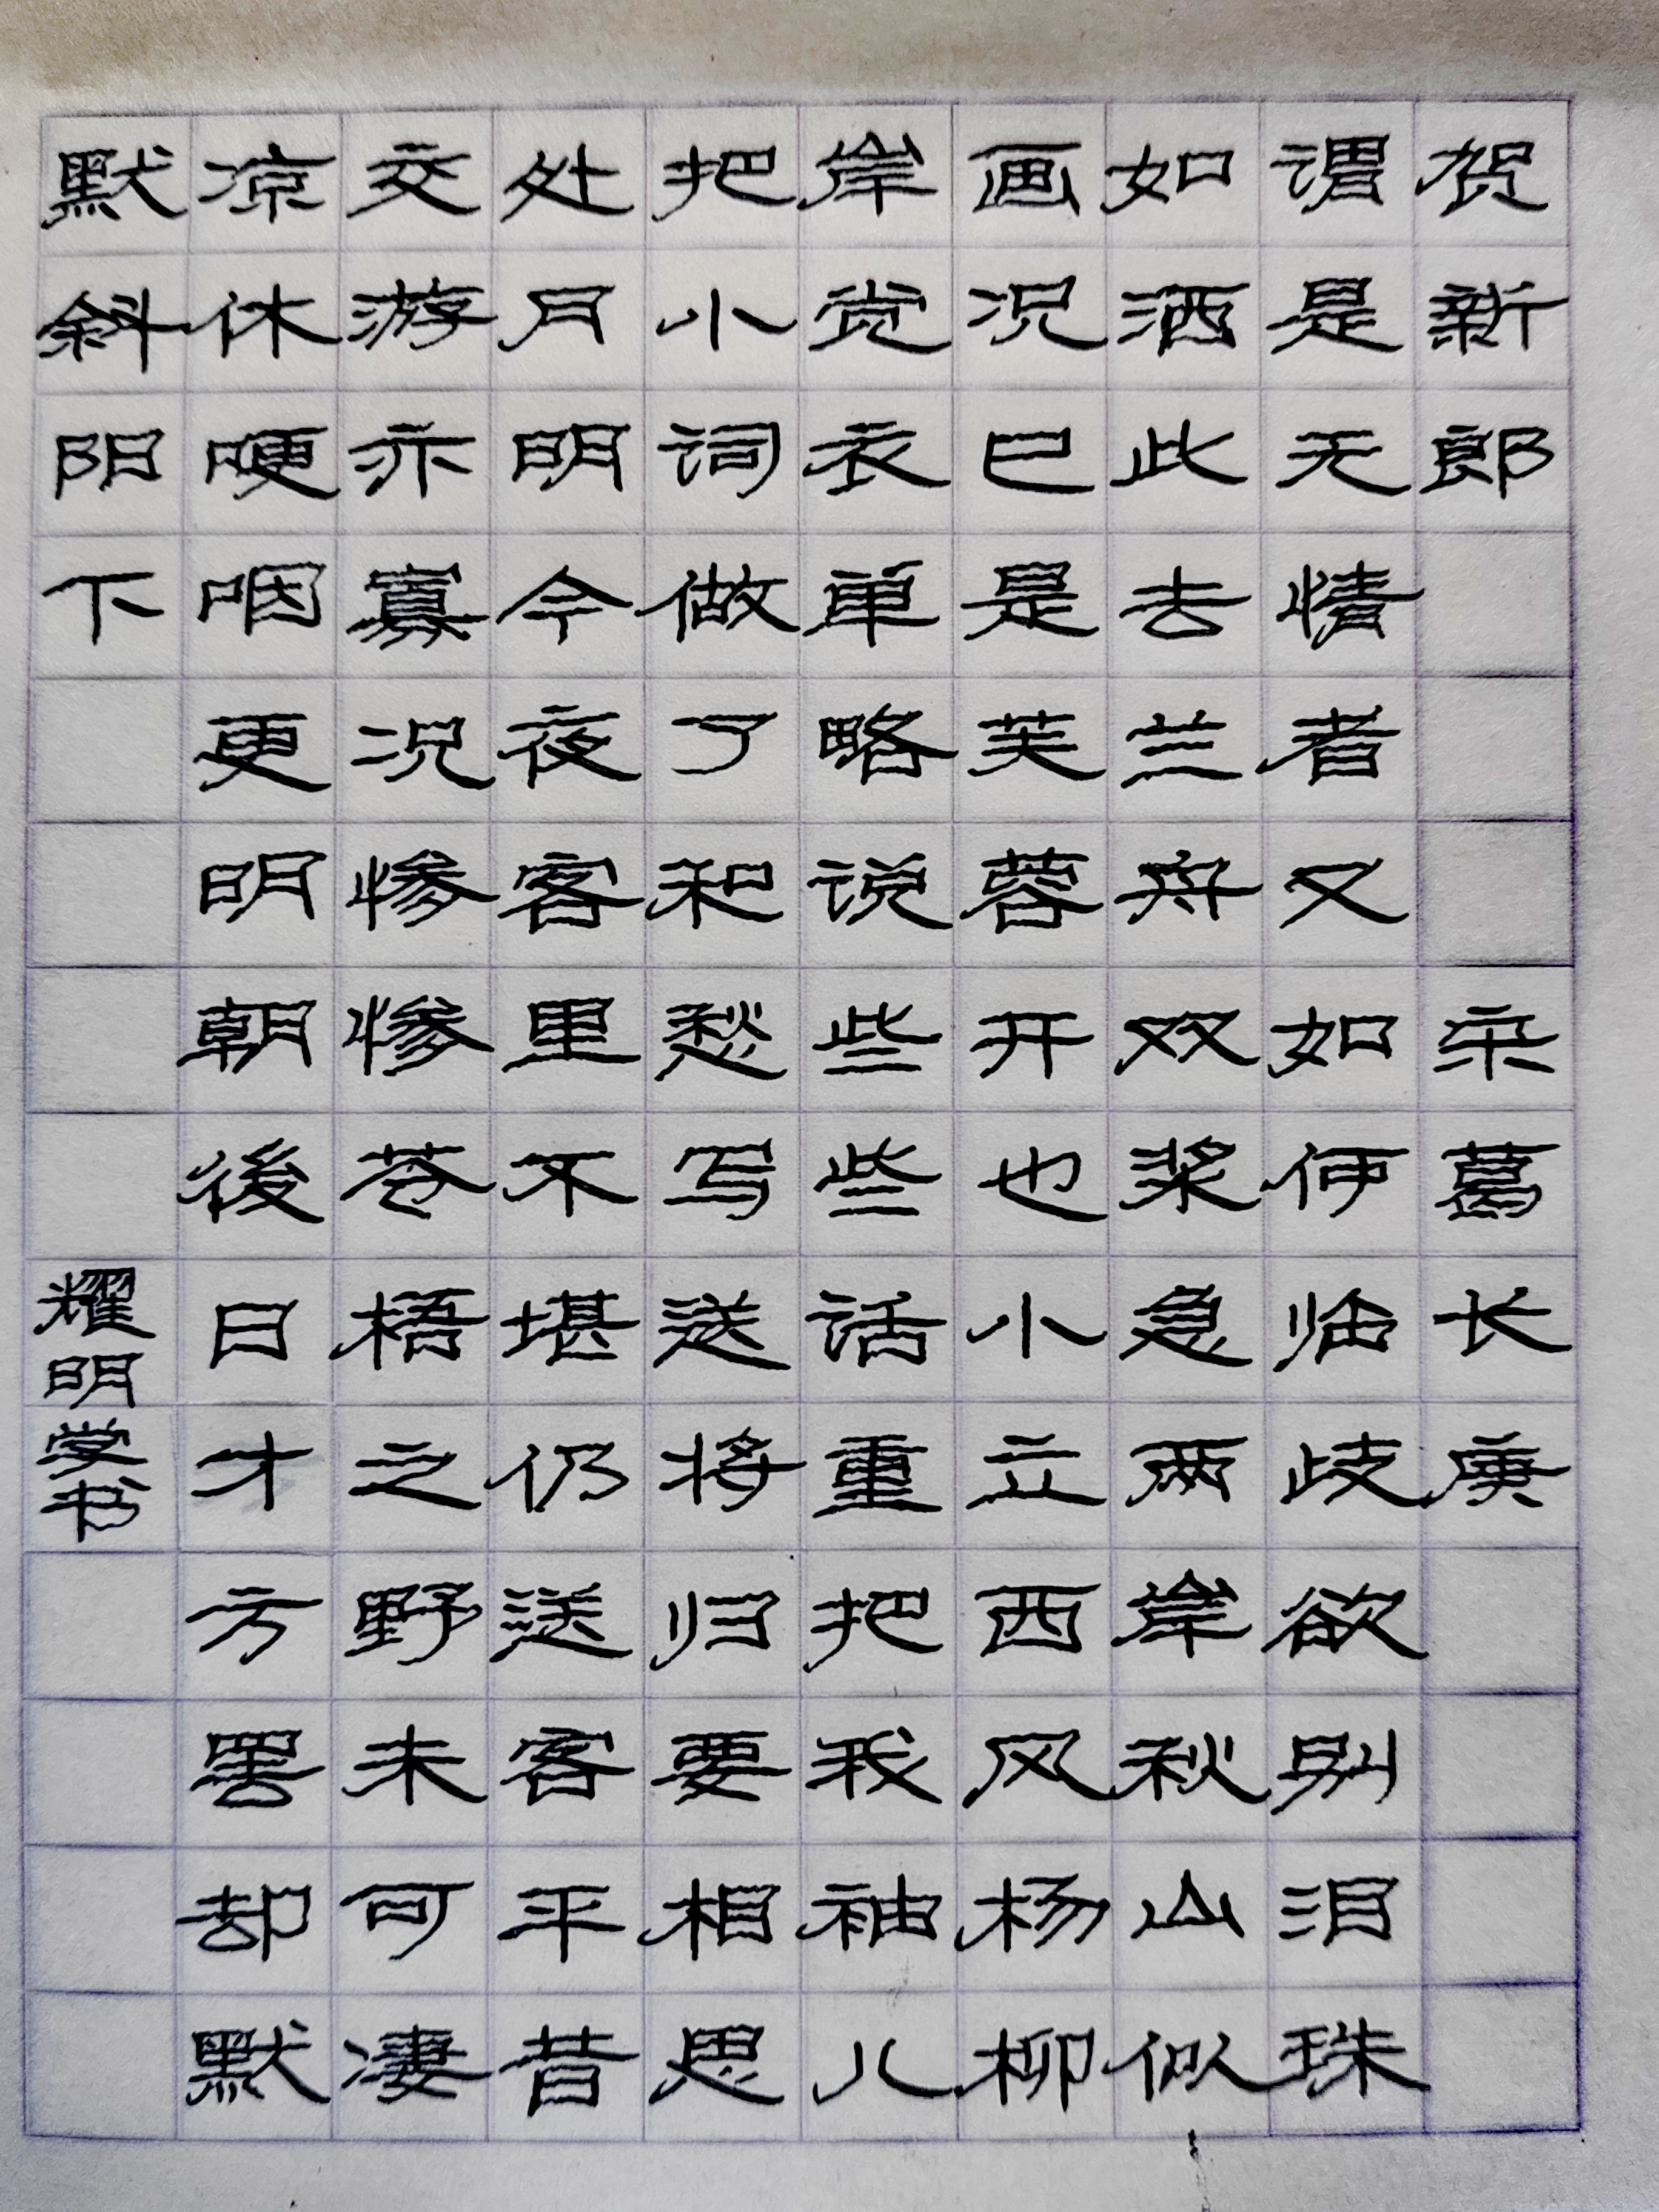 贺新郎 宋 葛长庚
谓是无情者又如何临歧欲别泪珠
如洒此去兰舟双桨急两岸秋山似
画况已是芙蓉开也小立西风杨柳
岸觉衣单略说些些话重把我袖儿
把小词做了和愁写送将归要相思
处月明今夜客里不堪仍送客平昔
交游亦寡况惨惨苍梧之野未可凄
凉休哽咽更明朝後日才方罢却默
默斜阳下
耀明学书